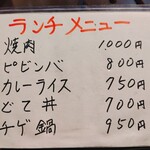 ランチメニュー
焼肉 1,000円
ピビンバ 800円
カレーライス 750円
どて丼 700円
チゲ鍋 950円